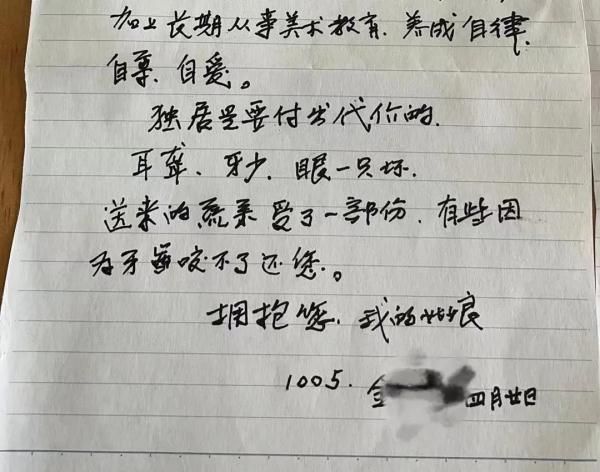 加上长期从事美术教育、养成自律、
自尊、自爱。
独居是要付出代价的.
耳聋、牙少、眼一只坏.
送来的蔬菜受了一部份.有些因
为牙齿咬不了还您。
拥抱您.我的姑娘
1005. 金 四月廿日